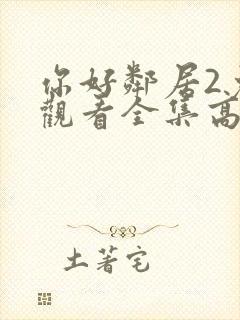 你好鄰居2
觀看全集高
土著宅